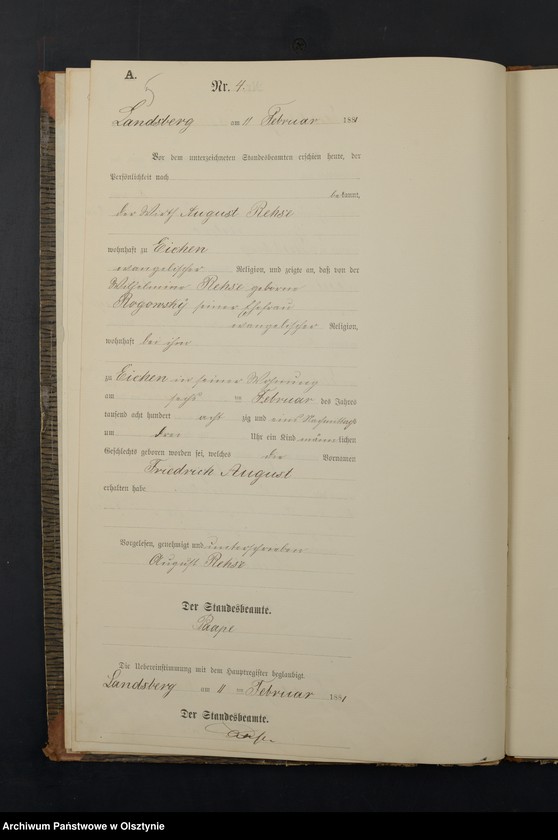 A.
Nr. 4.
Landsberg am 11 Februar 1881
Vor dem unterzeichneten Standesbeamten erschien heute, der
Persönlichkeit nach
bekannt,
der Wirth August Rehse
wohnhaft zu Eichen
evangelischer Religion, und zeigte an, daß von der
Wilhelmine Rehse geborne
Rogowsky seiner Ehefrau
evangelischer Religion,
wohnhaft bei ihm
zu Eichen in seiner Wohnung
am sechs ten Februar des Jahres
tausend acht hundert acht zig und eins Nachmittags
um drei Uhr ein Kind männlichen
Geschlechts geboren worden sei, welches die Vornamen
Friedrich August
erhalten habe
Vorgelesen, genehmigt und unterschrieben
August Rehse
Der Standesbeamte.
Paape
Die Uebereinstimmung mit dem Hauptregister beglaubigt.
Landsberg am 11 ten Februar 1881
Der Standesbeamte.
Paape
Archiwum Państwowe w Olsztynie